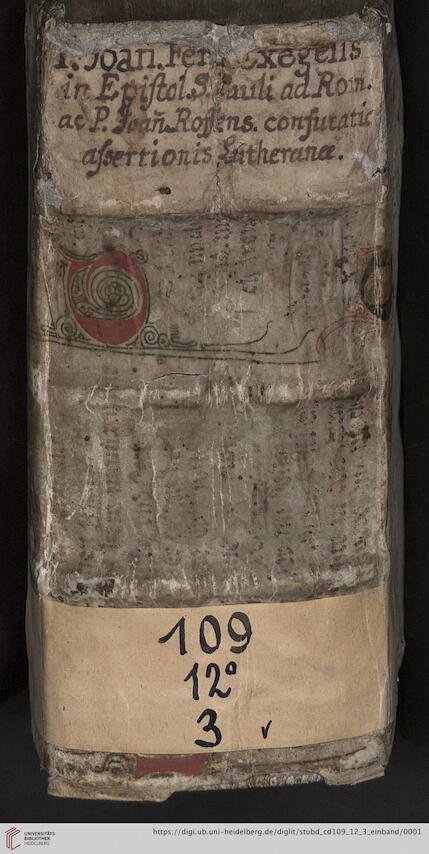 P. Joan. Feri Exegesis
in Epistol. S. Pauli ad Rom.
ac P. Joañ. Roffens. confutatio
assertionis Lutheranæ.
109
12°
3 v
UNIVERSITÄTS-
BIBLIOTHEK
HEIDELBERG
https://digi.ub.uni-heidelberg.de/diglit/stubd_cd109_12_3_einband/0001